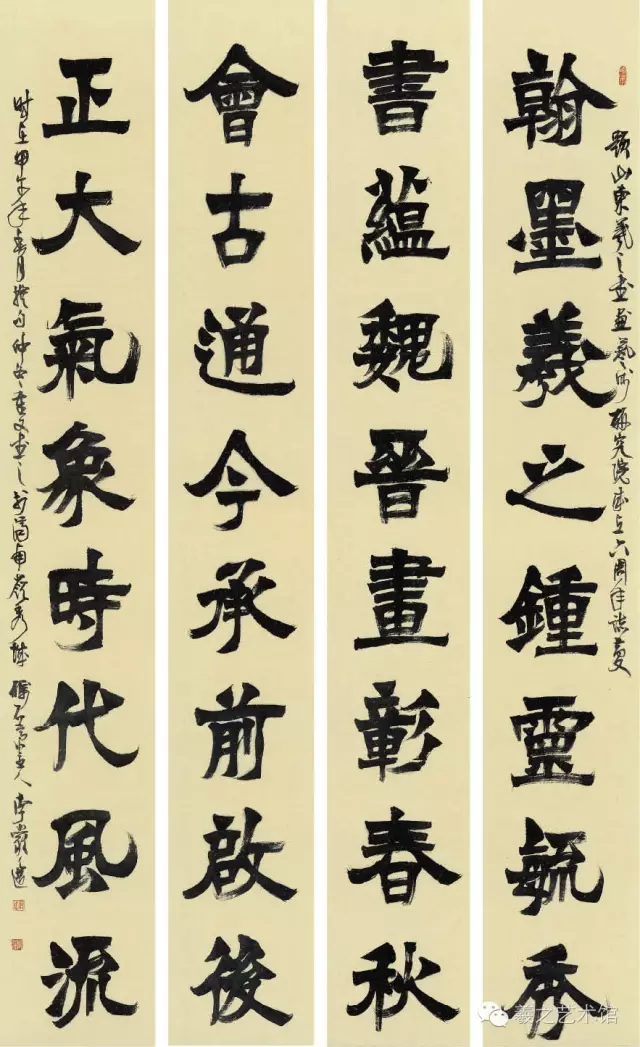 翰墨羲之鍾靈毓秀
題山東羲之書畫藝術研究院成立六周年誌慶
書蘊魏晉畫彰春秋
會古通今承前啟後
正大氣象時代風流
時在甲午年春月
羲之艺术馆